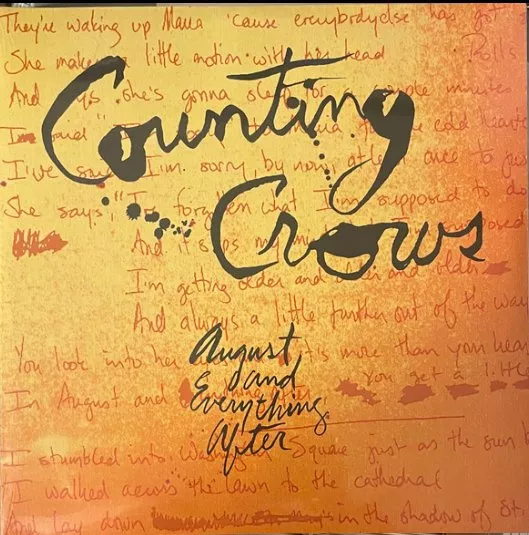 They're waking up Maria 'cause everybody else has got
She makes a little motion with her head
Rolls
And says she's gonna sleep for a couple minutes
Counting
Crows
I've said I'm sorry by now at least once to
She says "I've forgotten what I'm supposed to do
And it slips my
I'm getting older and older and older
And always a little further out of the way
You look into her it's more than your hear
August
and
Everything
After
In August and
You get a little
I stumbled into Washington Square just as the sun
I walked across the lawn to the cathedral
And lay down in the shadow of St.